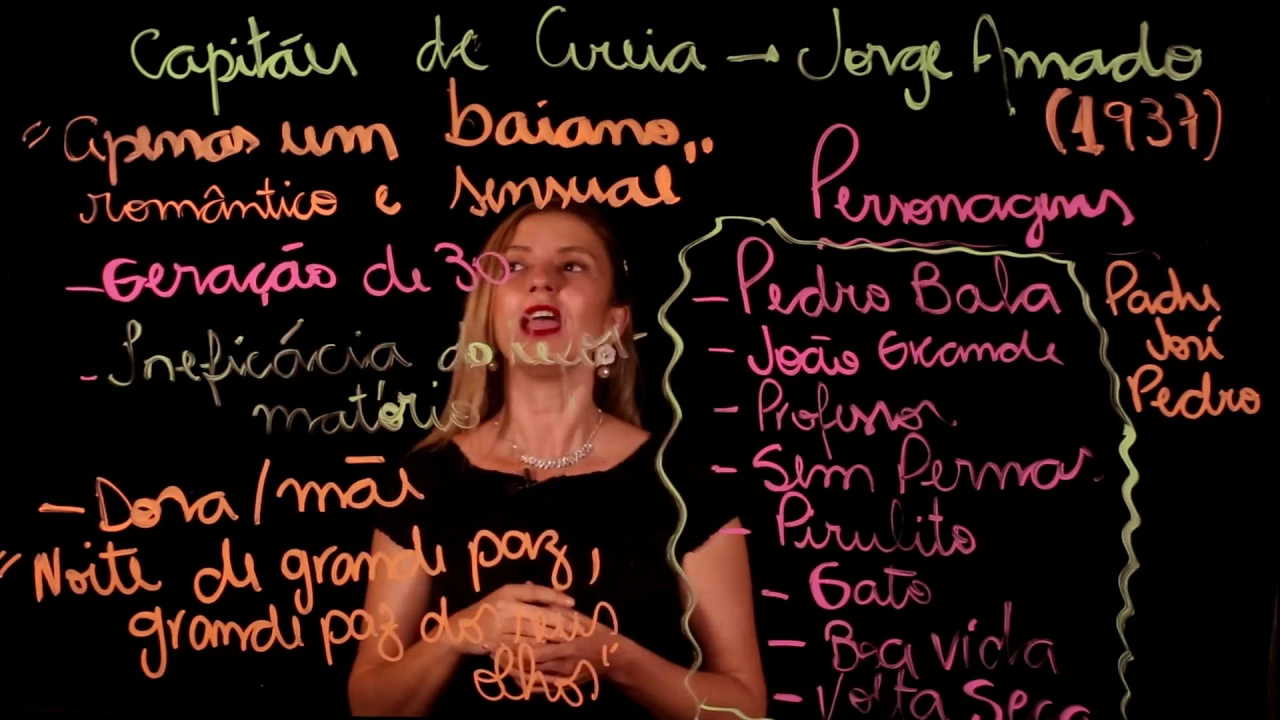 Capitães de Areia → Jorge Amado
(1937)
"Apenas um baiano
romântico e sensual"
- Geração de 30
- Ineficácia do refor-
matório
- Dora/mãe
"Noite de grande paz,
grande paz dos meus
olhos"
Personagens
- Pedro Bala
- João Grande
- Professor
- Sem Pernas
- Pirulito
- Gato
- Boa vida
- Volta Seca
Padre
José
Pedro